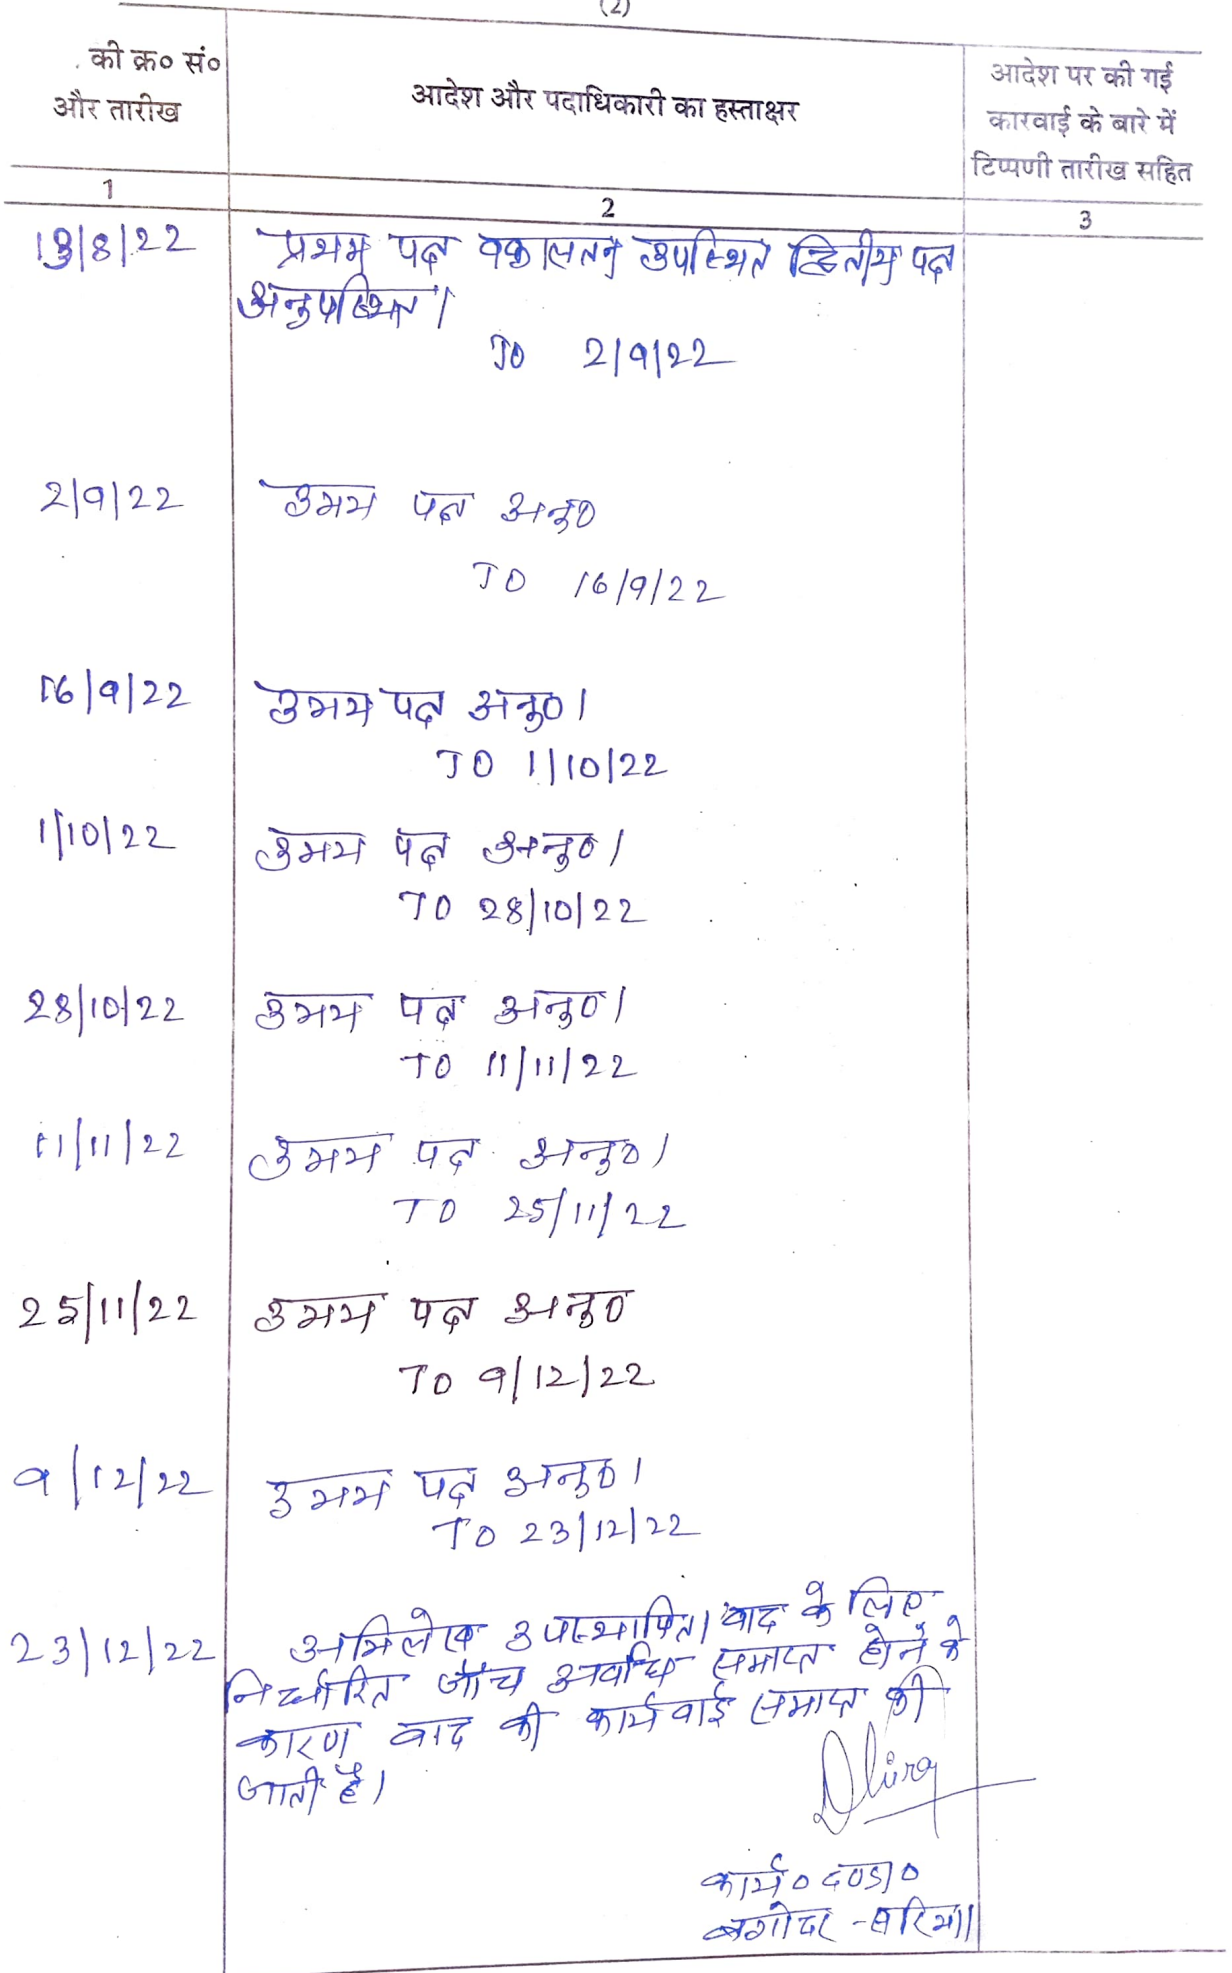 (2)
की क्र० सं०
और तारीख
आदेश और पदाधिकारी का हस्ताक्षर
आदेश पर की गई
कारवाई के बारे में
टिप्पणी तारीख सहित
1
2
3
19/8/22 प्रथम पक्ष वकालतन उपस्थित द्वितीय पक्ष
अनुपस्थित।
TO 2/9/22
2/9/22 उभय पक्ष अनु०
TO 16/9/22
16/9/22 उभय पक्ष अनु०।
TO 1/10/22
1/10/22 उभय पक्ष अनु०।
TO 28/10/22
28/10/22 उभय पक्ष अनु०।
TO 11/11/22
11/11/22 उभय पक्ष अनु०।
TO 25/11/22
25/11/22 उभय पक्ष अनु०
TO 9/12/22
9/12/22 उभय पक्ष अनु०।
TO 23/12/22
23/12/22 अभिलेख उपस्थापित। वाद के लिए
निर्धारित जाँच अवधि समाप्त होने के
कारण वाद की कार्यवाई समाप्त की
जाती है।
कार्य० दण्डा०
बगोदर - सरिया।